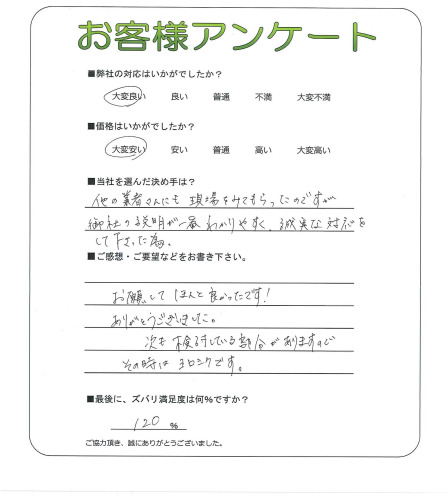 お客様アンケート
■弊社の対応はいかがでしたか？
大変良い 良い 普通 不満 大変不満
■価格はいかがでしたか？
大変安い 安い 普通 高い 大変高い
■当社を選んだ決め手は？
他の業者さんにも現場をみてもらったのですが
御社の説明が一番わかりやすく、誠実な対応を
して下さった為。
■ご感想・ご要望などをお書き下さい。
お願いして ほんと良かったです！
ありがとうございました。
次も検討している部分がありますので
その時は ヨロシクです。
■最後に、ズバリ満足度は何%ですか？
120 %
ご協力頂き、誠にありがとうございました。